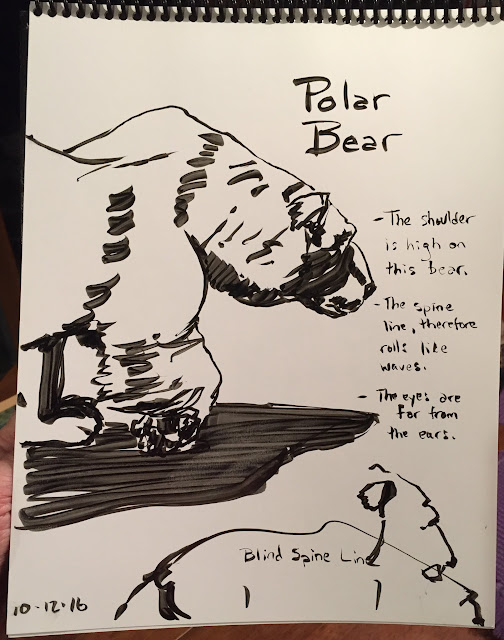 Polar
Bear
- The shoulder
is high on
this bear.
- The spine
line, therefore
rolls like
waves.
- The eyes are
far from
the ears.
Blind Spine Line
10-12-16